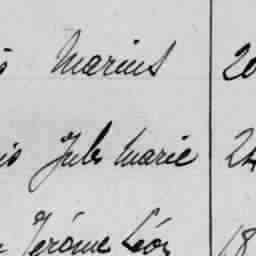 Marius 20
Jules Marie 24
Jérôme Léon 18